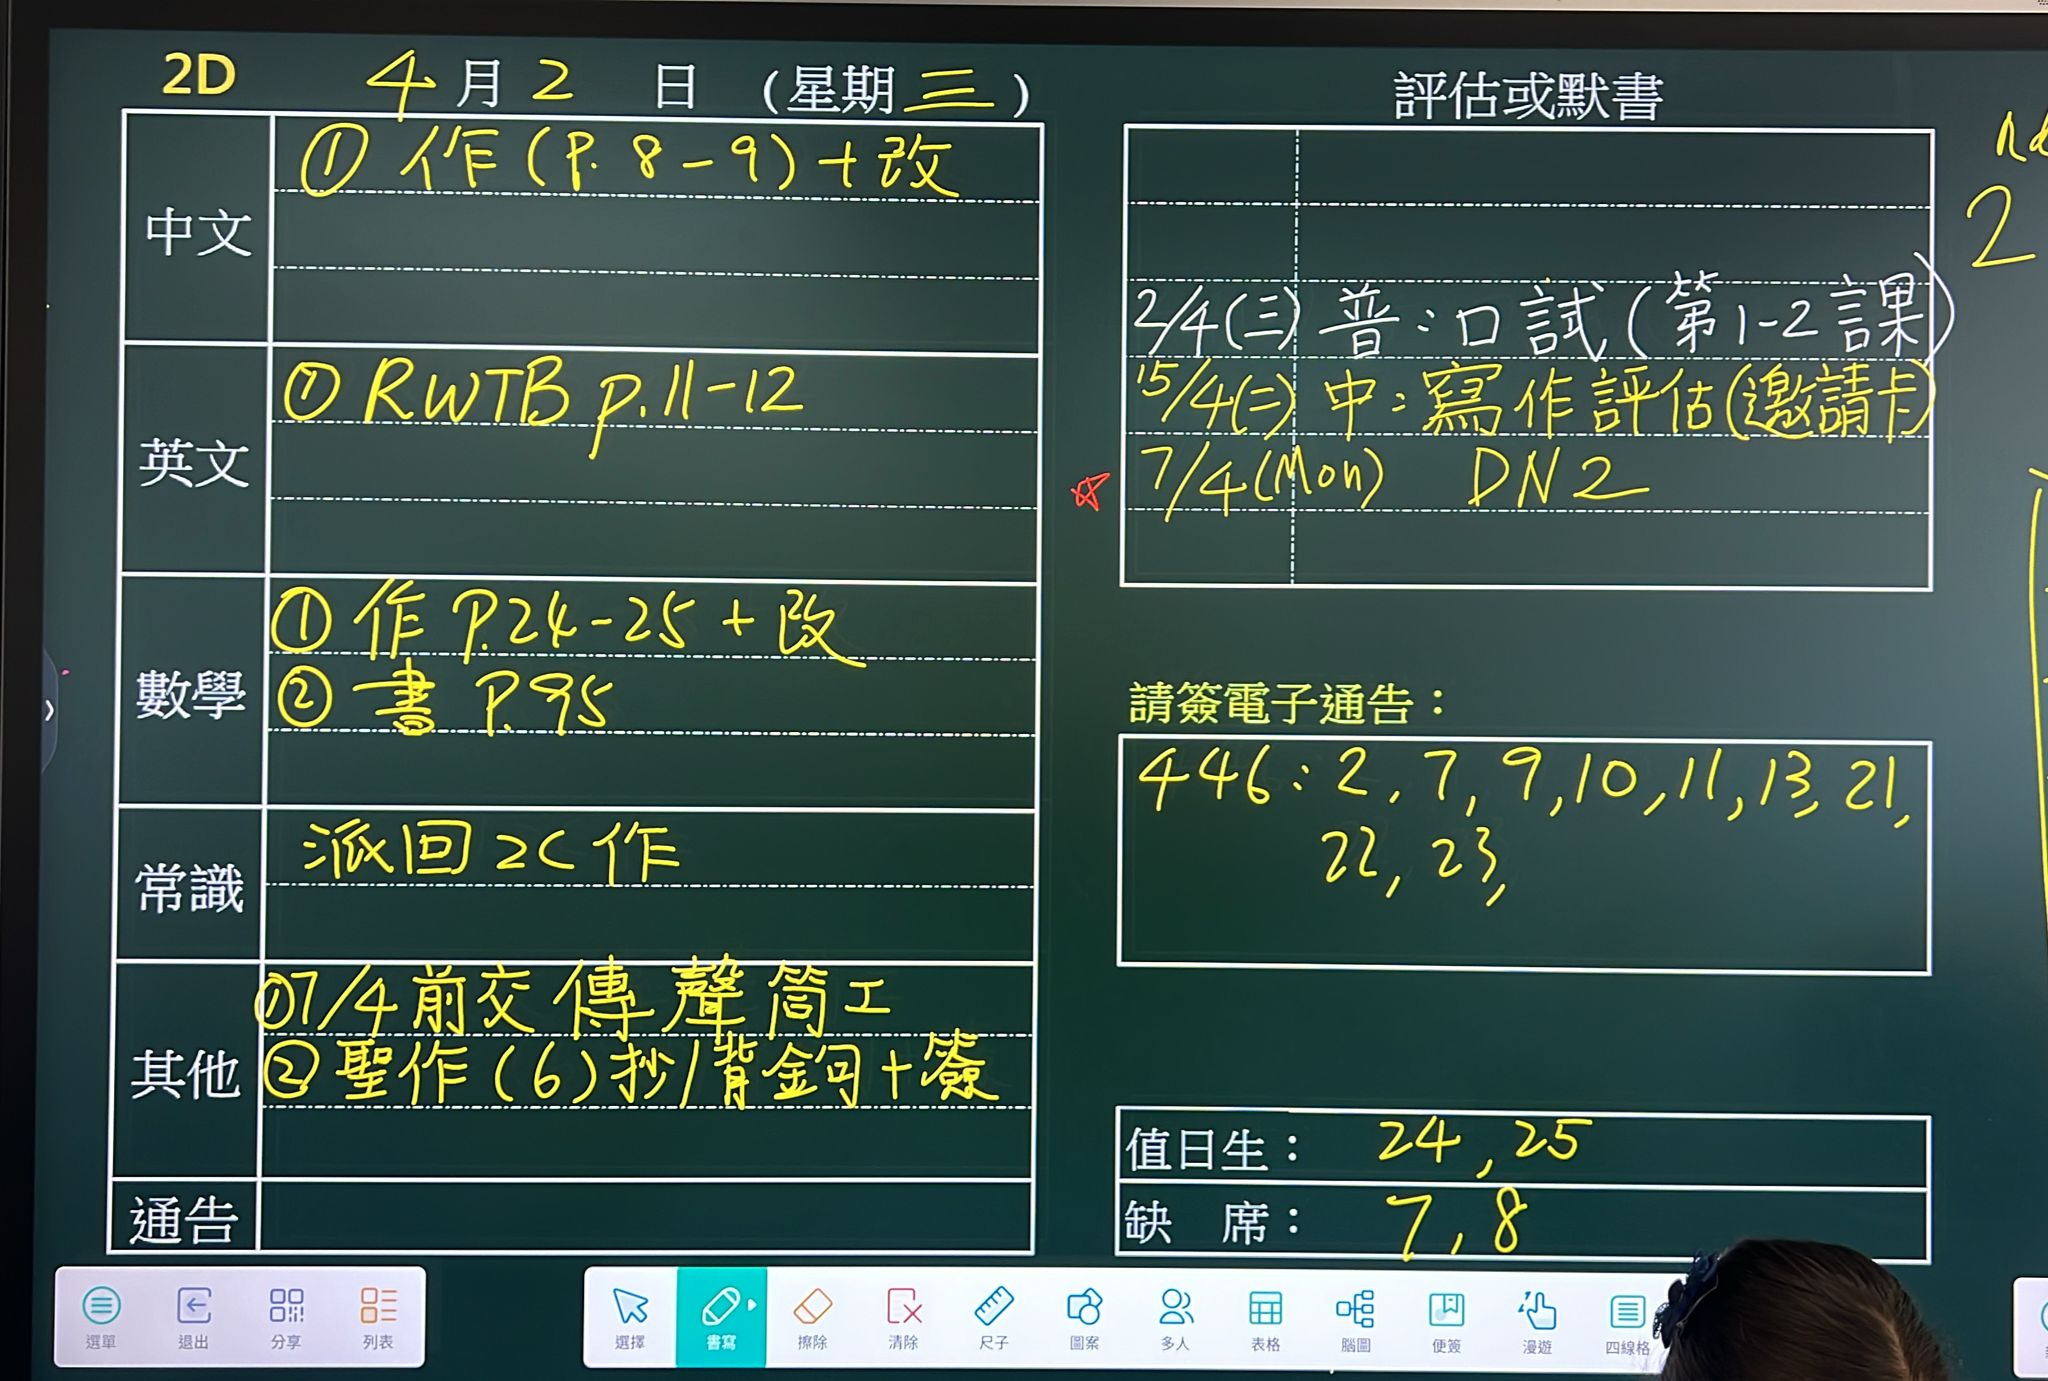 2D 4月2日（星期三）
中文
① 作(P.8-9)+改
英文
① RWTB p.11-12
數學
① 作 P.24-25+改
② 書 P.95
常識
派回2C作
其他
①7/4前交傳聲筒工
②聖作(6)抄/背金句+簽
通告
評估或默書
2/4(三) 普：口試(第1-2課)
15/4(二) 中：寫作評估(邀請卡)
7/4(Mon) DN2
請簽電子通告：
446：2,7,9,10,11,13,21,
22,23,
值日生： 24,25
缺席： 7,8
2
選單 退出 分享 列表
選擇 書寫 擦除 清除 尺子 圖案 多人 表格 腦圖 便簽 漫遊 四線格